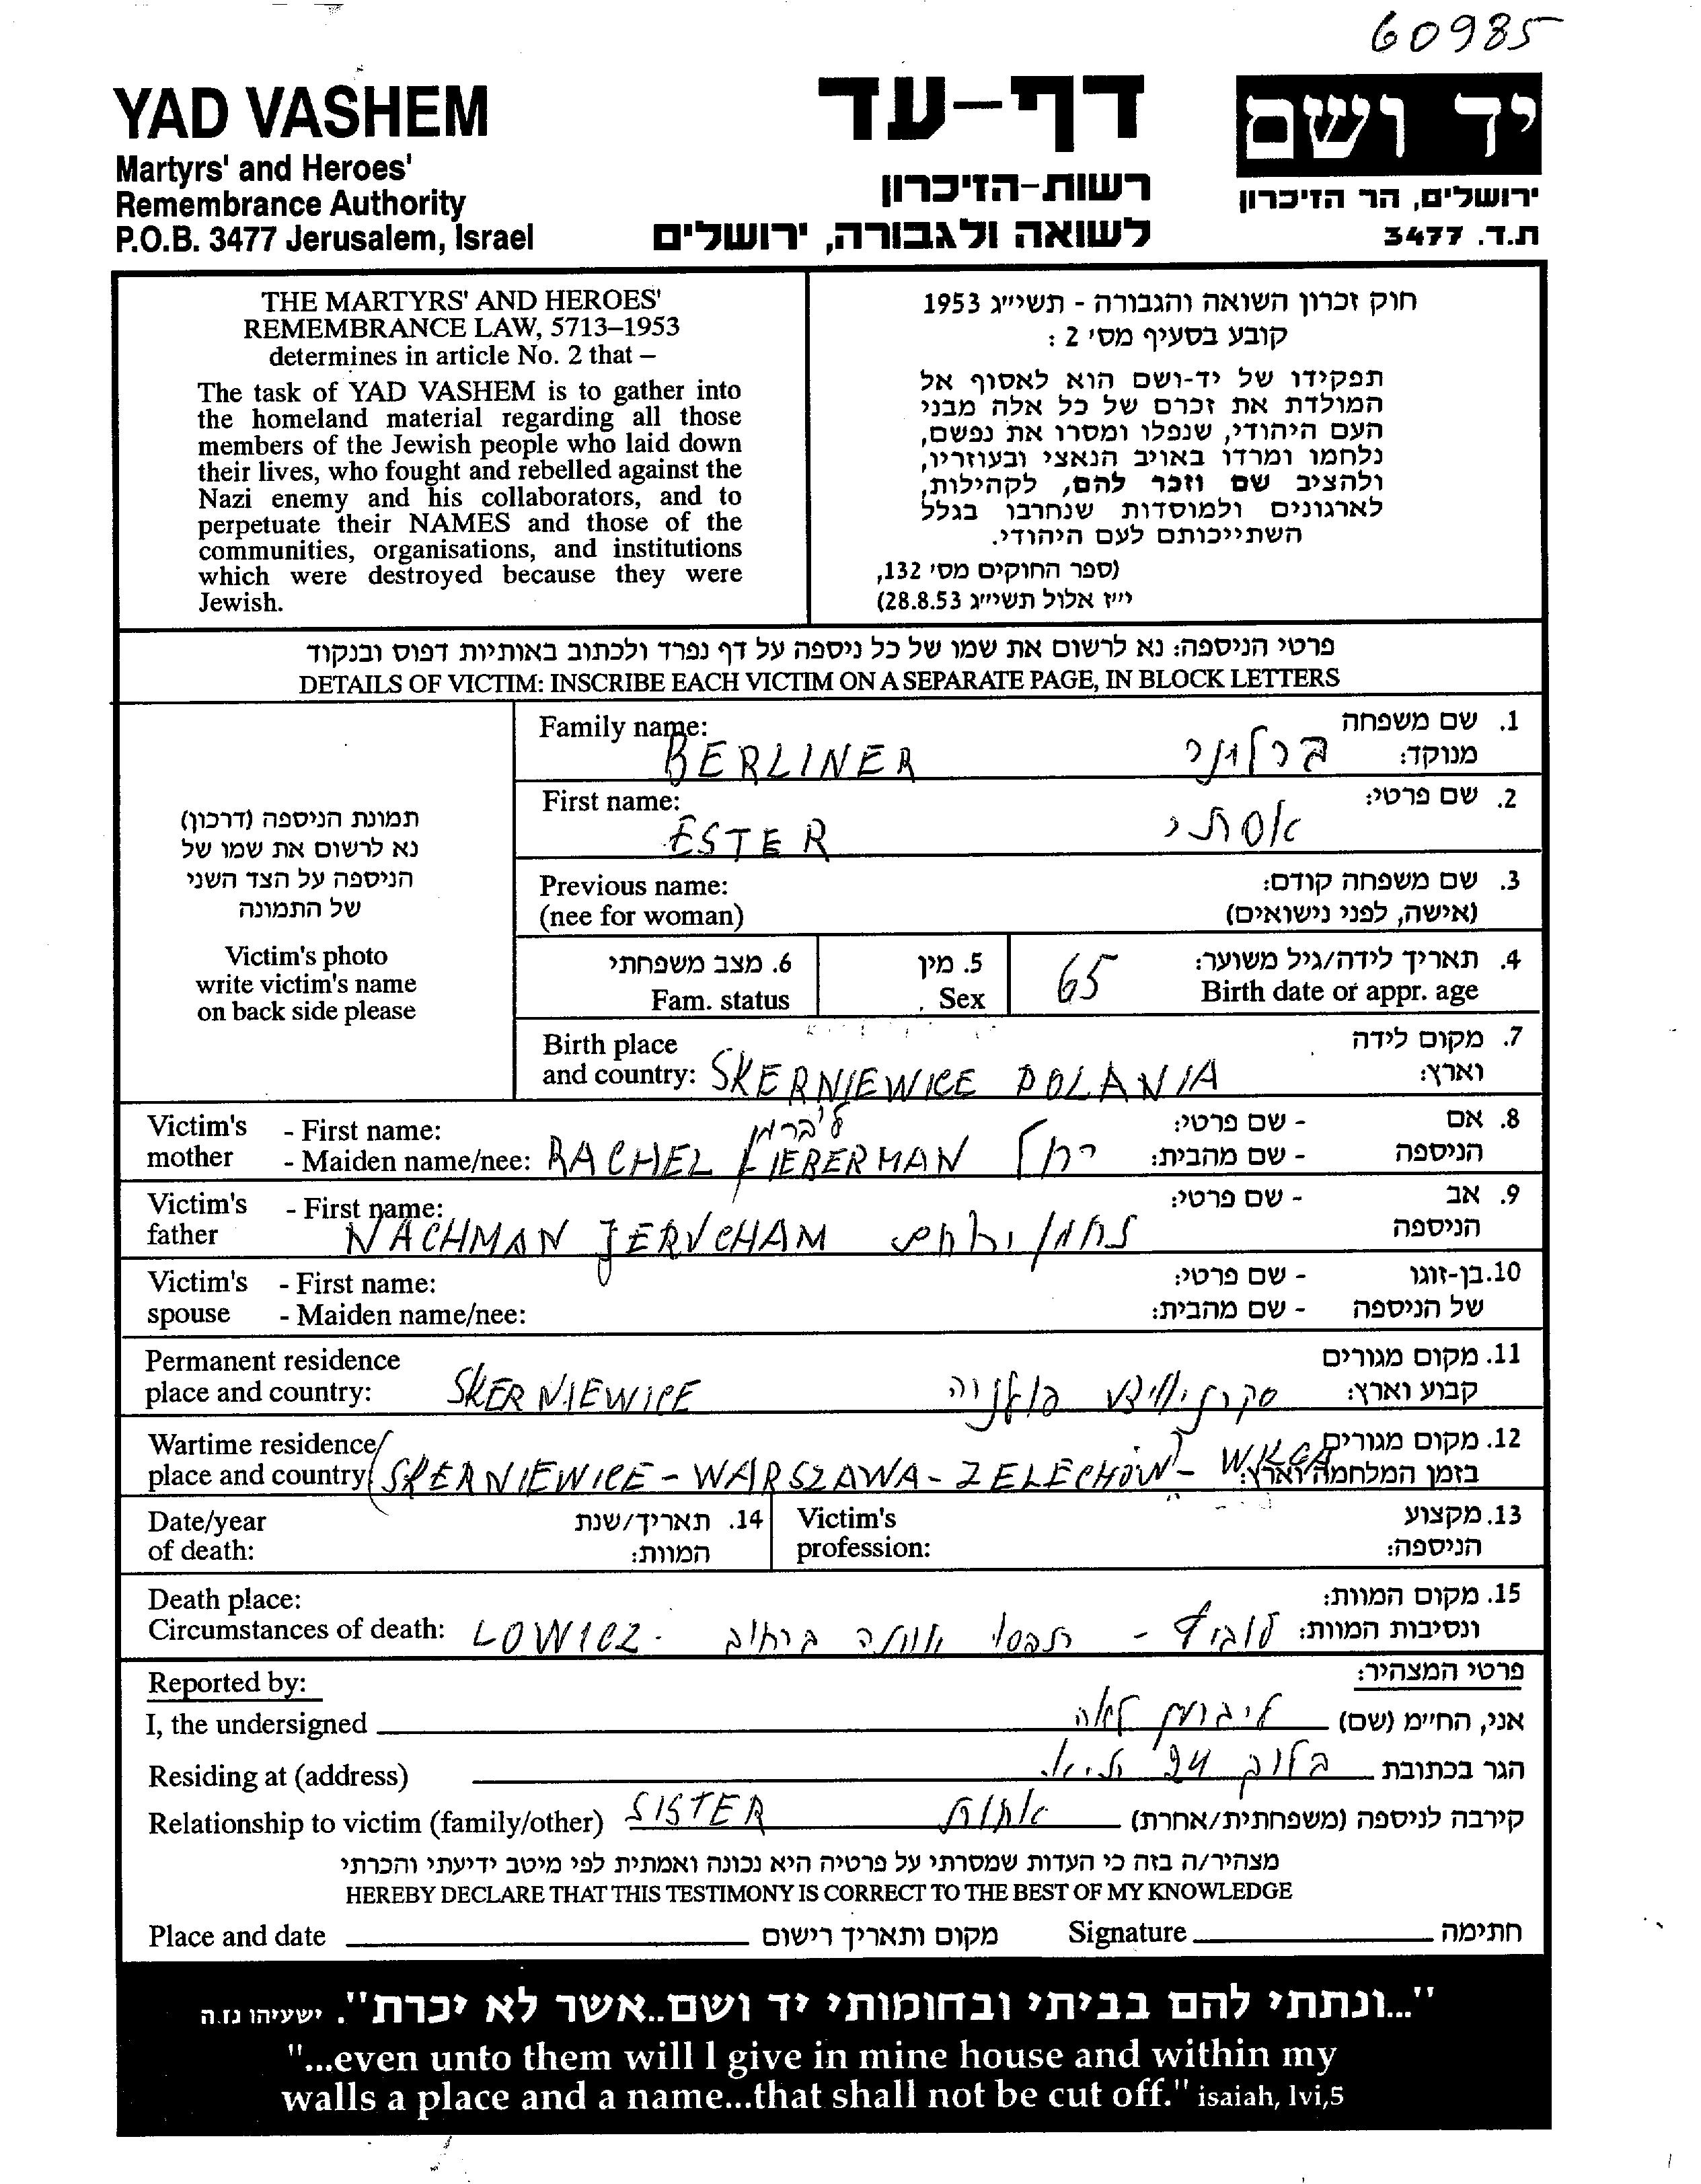 60985
YAD VASHEM
Martyrs' and Heroes'
Remembrance Authority
P.O.B. 3477 Jerusalem, Israel
דף-עד
רשות-הזיכרון
לשואה ולגבורה, ירושלים
יד ושם
ירושלים, הר הזיכרון
ת.ד. 3477
THE MARTYRS' AND HEROES'
REMEMBRANCE LAW, 5713–1953
determines in article No. 2 that –
The task of YAD VASHEM is to gather into
the homeland material regarding all those
members of the Jewish people who laid down
their lives, who fought and rebelled against the
Nazi enemy and his collaborators, and to
perpetuate their NAMES and those of the
communities, organisations, and institutions
which were destroyed because they were
Jewish.
חוק זכרון השואה והגבורה - תשי״ג 1953
קובע בסעיף מס׳ 2 :
תפקידו של יד-ושם הוא לאסוף אל
המולדת את זכרם של כל אלה מבני
העם היהודי, שנפלו ומסרו את נפשם,
נלחמו ומרדו באויב הנאצי ובעוזריו,
ולהציב שם וזכר להם, לקהילות,
לארגונים ולמוסדות שנחרבו בגלל
השתייכותם לעם היהודי.
(ספר החוקים מס׳ 132,
י״ז אלול תשי״ג 28.8.53)
פרטי הניספה: נא לרשום את שמו של כל ניספה על דף נפרד ולכתוב באותיות דפוס ובנקוד
DETAILS OF VICTIM: INSCRIBE EACH VICTIM ON A SEPARATE PAGE, IN BLOCK LETTERS
תמונת הניספה (דרכון)
נא לרשום את שמו של
הניספה על הצד השני
של התמונה
Victim's photo
write victim's name
on back side please
Family name: 1. שם משפחה
BERLINER מנוקד:
First name: 2. שם פרטי:
ESTER אסתר
Previous name: 3. שם משפחה קודם:
(nee for woman) (אישה, לפני נישואים)
6. מצב משפחתי 5. מין 4. תאריך לידה/גיל משוער:
Fam. status Sex 65 Birth date or appr. age
Birth place 7. מקום לידה
and country: SKERNIEWICE POLANIA וארץ:
Victim's - First name: ליברמן - שם פרטי: 8. אם
mother - Maiden name/nee: RACHEL LIEBERMAN רחל - שם מהבית: הניספה
Victim's - First name: - שם פרטי: 9. אב
father NACHMAN JERUCHAM נחמן ירוחם הניספה
Victim's - First name: - שם פרטי: 10. בן-זוגו
spouse - Maiden name/nee: - שם מהבית: של הניספה
Permanent residence 11. מקום מגורים
place and country: SKERNIEWICE פולניה קבוע וארץ:
Wartime residence 12. מקום מגורים
place and country SKERNIEWICE - WARSZAWA - ZELECHÓW - בזמן המלחמה וארץ:
Date/year 14. תאריך/שנת Victim's 13. מקצוע
of death: המוות: profession: הניספה:
Death place: 15. מקום המוות:
Circumstances of death: LOWICZ. ברחוב ונסיבות המוות:
Reported by: פרטי המצהיר:
I, the undersigned ליברמן לאה אני, החי״מ (שם)
Residing at (address) בלוק 94 הגר בכתובת
Relationship to victim (family/other) SISTER אחות קירבה לניספה (משפחתית/אחרת)
מצהיר/ה בזה כי העדות שמסרתי על פרטיה היא נכונה ואמתית לפי מיטב ידיעתי והכרתי
HEREBY DECLARE THAT THIS TESTIMONY IS CORRECT TO THE BEST OF MY KNOWLEDGE
Place and date מקום ותאריך רישום Signature חתימה
"...ונתתי להם בביתי ובחומותי יד ושם..אשר לא יכרת". ישעיהו נו.ה
"...even unto them will I give in mine house and within my
walls a place and a name...that shall not be cut off." isaiah, lvi,5